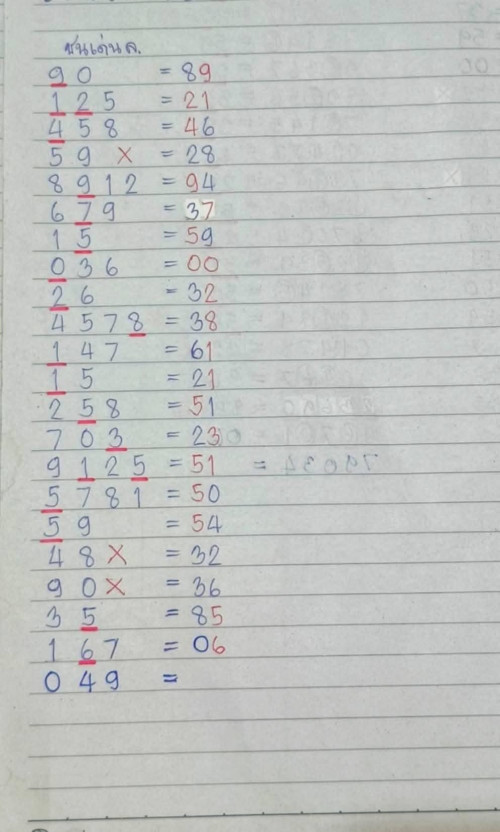 ชนเด่นล.
90 = 89
125 = 21
458 = 46
59 × = 28
8912 = 94
679 = 37
15 = 59
036 = 00
26 = 32
4578 = 38
147 = 61
15 = 21
258 = 51
703 = 23
9125 = 51
5781 = 50
59 = 54
48 × = 32
90 × = 36
35 = 85
167 = 06
049 =